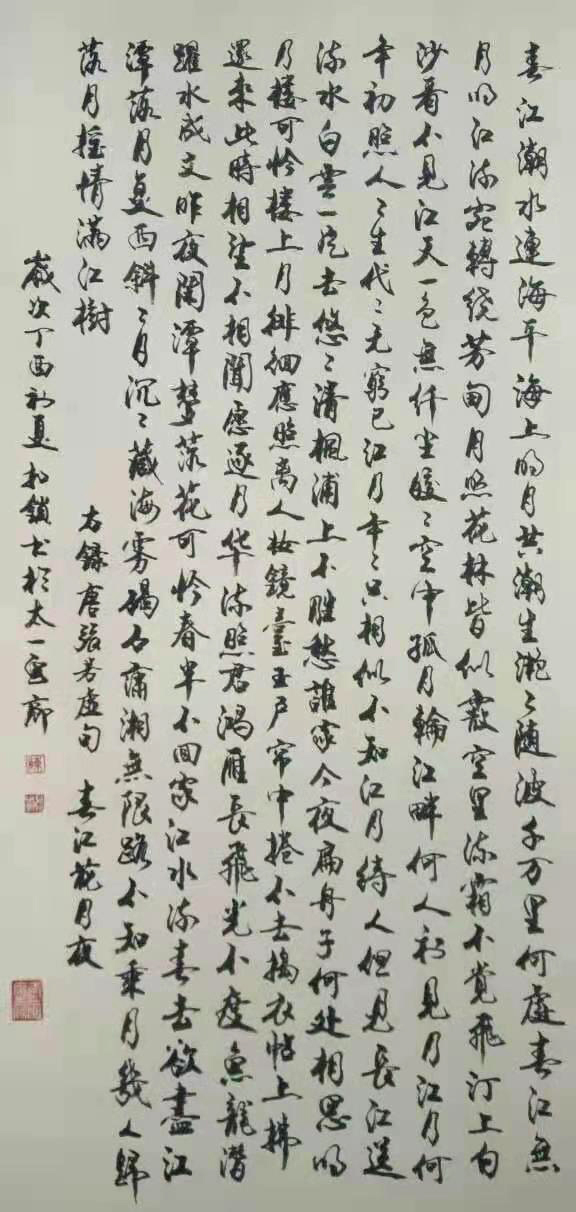 春江潮水連海平海上明月共潮生灧〻随波千万里何處春江無
月明江流宛轉绕芳甸月照花林皆似霰空里流霜不觉飛汀上白
沙看不見江天一色無纤尘皎〻空中孤月輪江畔何人初見月江月何
年初照人〻生代〻无窮已江月年〻只相似不知江月待人但見長江送
流水白雲一片去悠〻清楓浦上不胜愁誰家今夜扁舟子何处相思明
月楼可怜楼上月徘徊應照离人妆鏡臺玉户帘中捲不去搗衣帖上拂
還来此時相望不相聞愿逐月华流照君鴻雁長飛光不度魚龍潛
躍水成文昨夜閑潭梦落花可怜春半不回家江水流春去欲盡江
潭落月复西斜〻月沉〻藏海雾碣石潇湘無限路不知乘月幾人歸
落月摇情滿江樹
右録唐張若虚句 春江花月夜
歲次丁酉初夏 鎖书於太一画廊